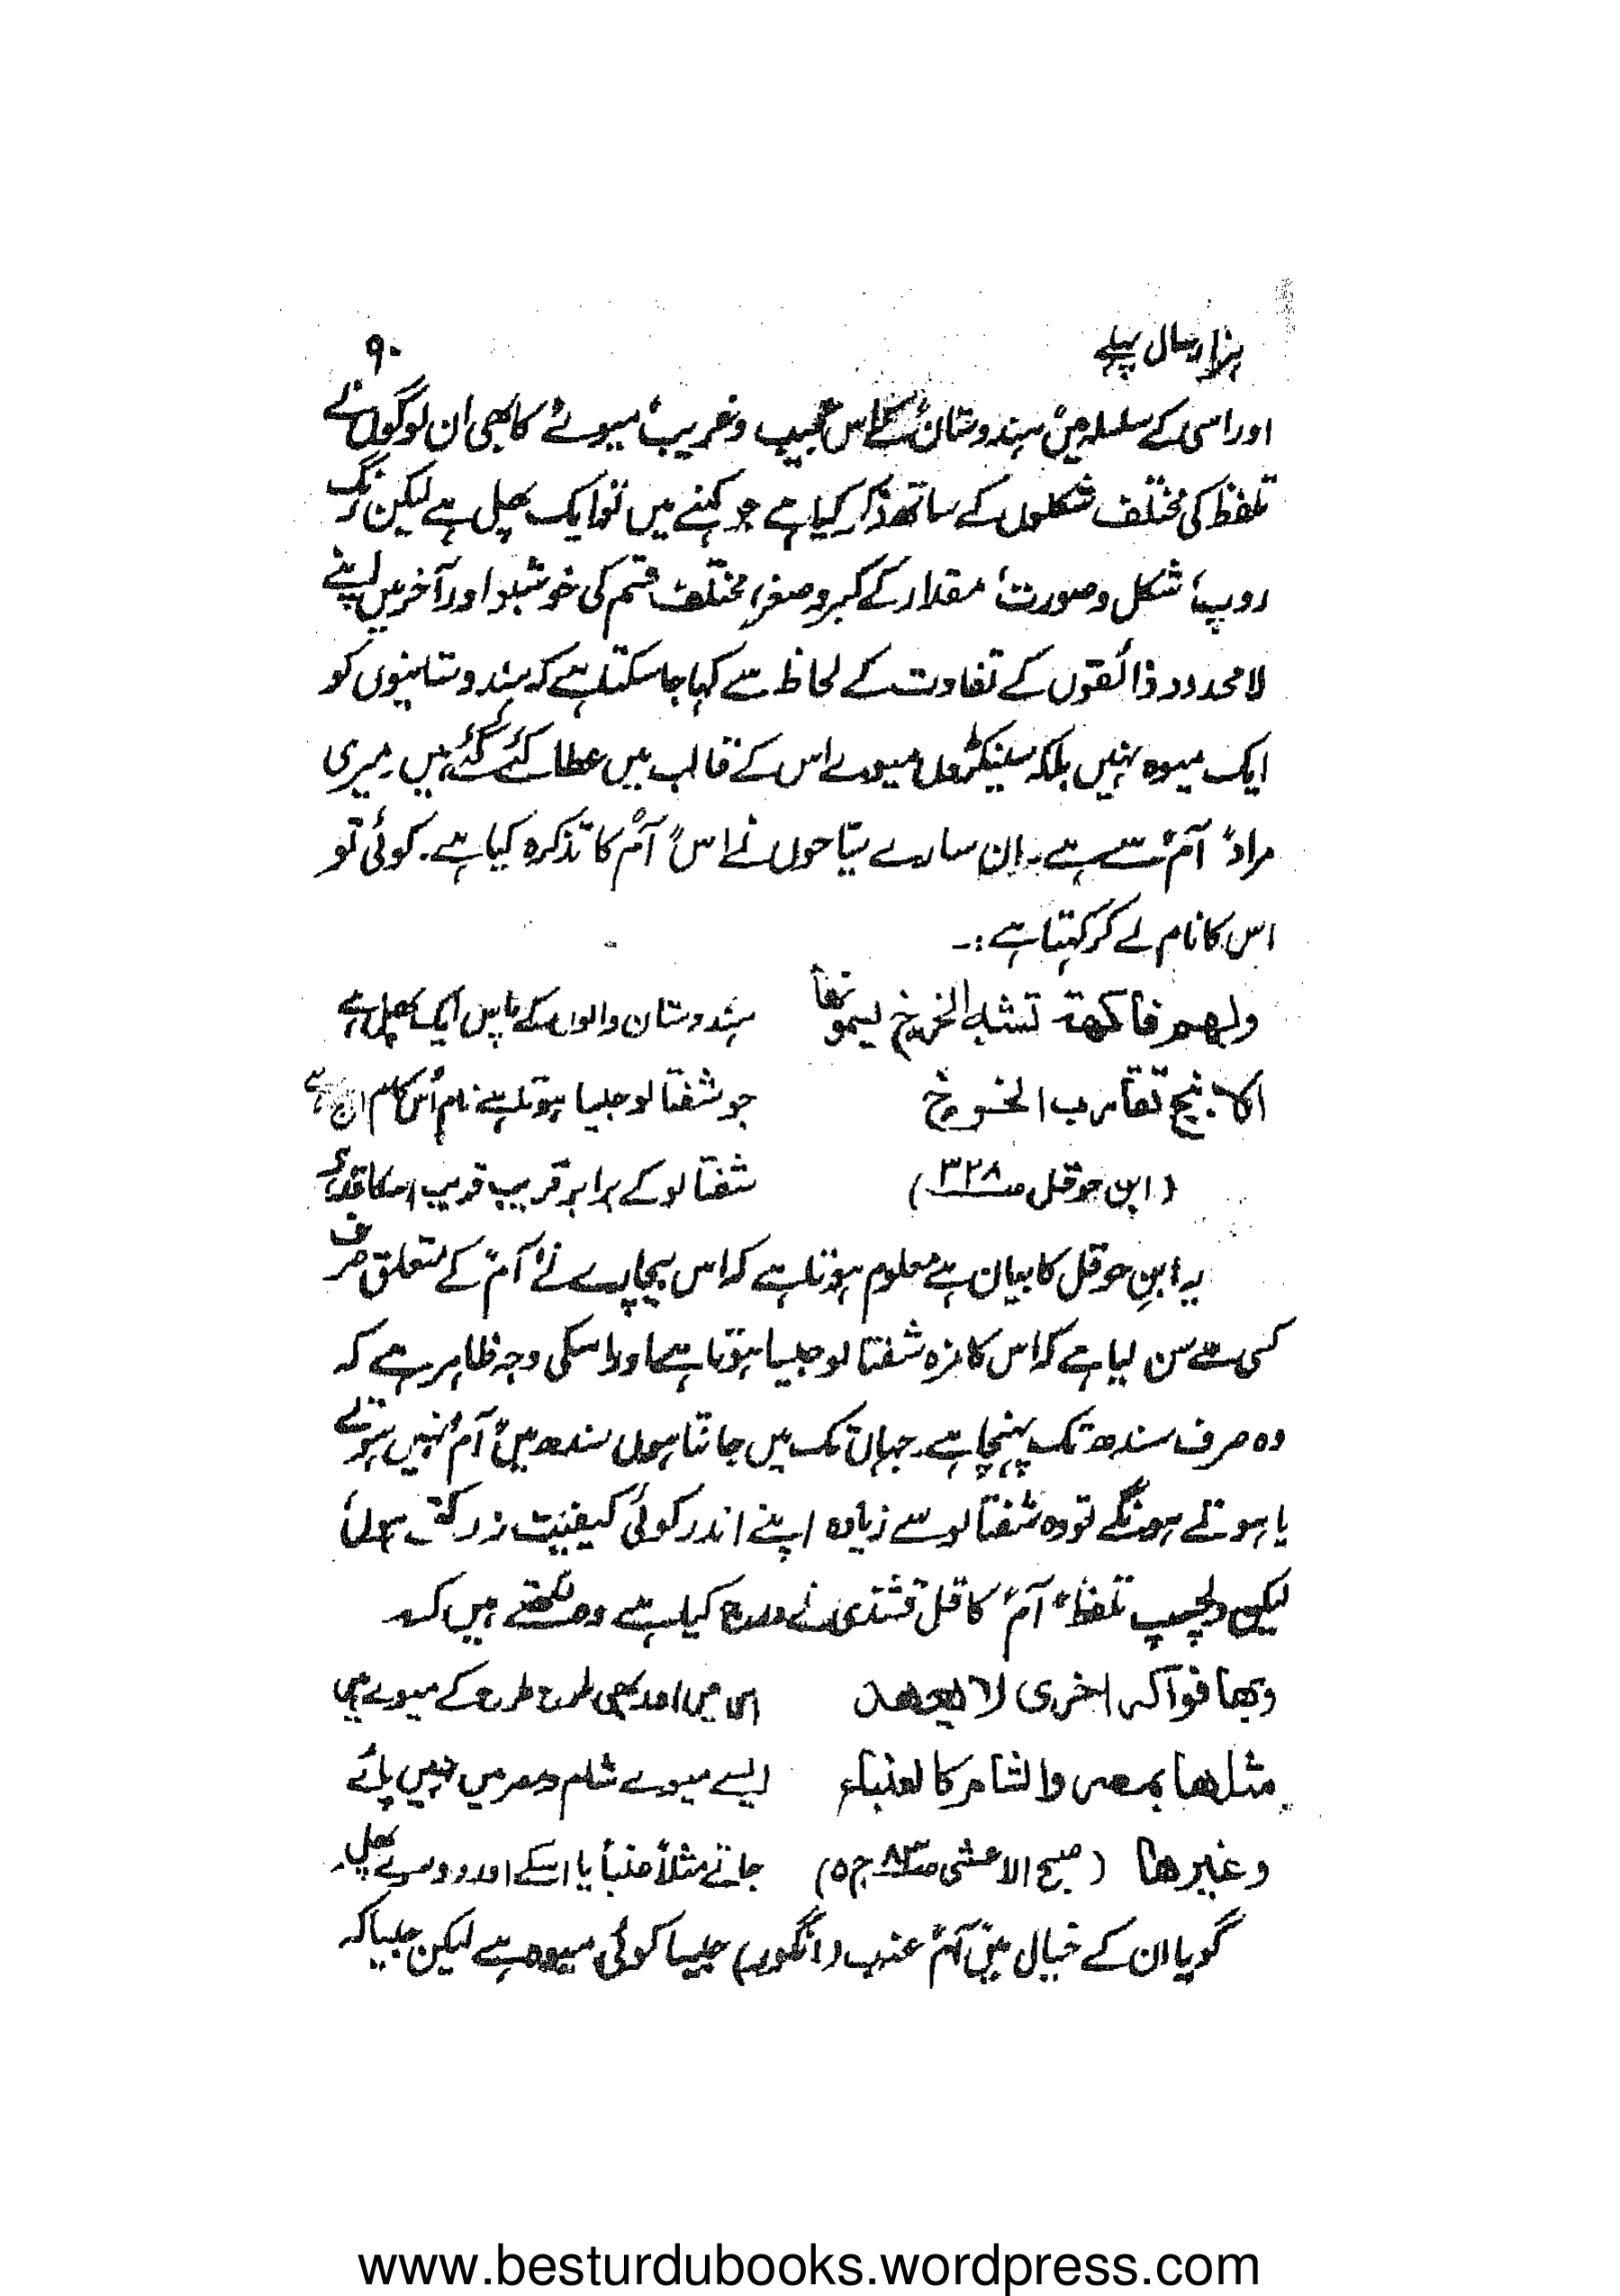 ہزار سال پہلے ۹۰
اور اسی کے سلسلہ میں ہندوستان کے اس عجیب و غریب میوے کا بھی ان لوگوں نے
تلفظ کی مختلف شکلوں کے ساتھ ذکر کیا ہے جو کہنے میں تو ایک پھل ہے لیکن رنگ
روپ، شکل و صورت، مقدار کے کبر و صغر، مختلف قسم کی خوشبو اور آخر میں اپنے
لا محدود ذائقوں کے تفاوت کے لحاظ سے کہا جا سکتا ہے کہ ہندوستانیوں کو
ایک میوہ نہیں بلکہ سینکڑوں میوے اس کے قالب میں عطا کئے گئے ہیں۔ میری
مراد "آم" سے ہے۔ ان سارے سیّاحوں نے اس "آم" کا تذکرہ کیا ہے۔ کوئی تو
اس کا نام لے کر کہتا ہے :۔
ولھم فاکھة تشبه الخوخ یسمونھا ہندوستان والوں کے پاس ایک پھل ہے
الانبج تقارب الخوخ جو شفتالو جیسا ہوتا ہے نام اُس کا
(ابن حوقل ص۳۲۸) شفتالو کے برابر قریب قریب اسکا
یہ ابنِ حوقل کا بیان ہے معلوم ہوتا ہے کہ اس بیچارے نے "آم" کے متعلق صرف
کسی سے سن لیا ہے کہ اس کا مزہ شفتالو جیسا ہوتا ہے اور اسکی وجہ ظاہر ہے کہ
وہ صرف سندھ تک پہنچا ہے۔ جہاں تک میں جانتا ہوں سندھ میں "آم" نہیں ہوتے
یا ہوتے ہونگے تو وہ شفتالو سے زیادہ اپنے اندر کوئی کیفیت نہ رکھتے ہوں،
لیکن دلچسپ تلفظ "آم" کا قلقشندی نے درج کیا ہے وہ لکھتے ہیں کہ
وبھا فواکہ اخری لا یعھد اس میں اور بھی طرح طرح کے میوے ہیں
مثلھا بمصر والشام کالعنباء ایسے میوے شام و مصر میں نہیں پائے
وغیرھا (صبح الاعشی ص۸۳ ج۵) جاتے مثلاً عنبا یا اسکے اور دوسرے پھل۔
گویا ان کے خیال میں "آم" عنب (انگور) جیسا کوئی میوہ ہے لیکن جیسا کہ
www.besturdubooks.wordpress.com